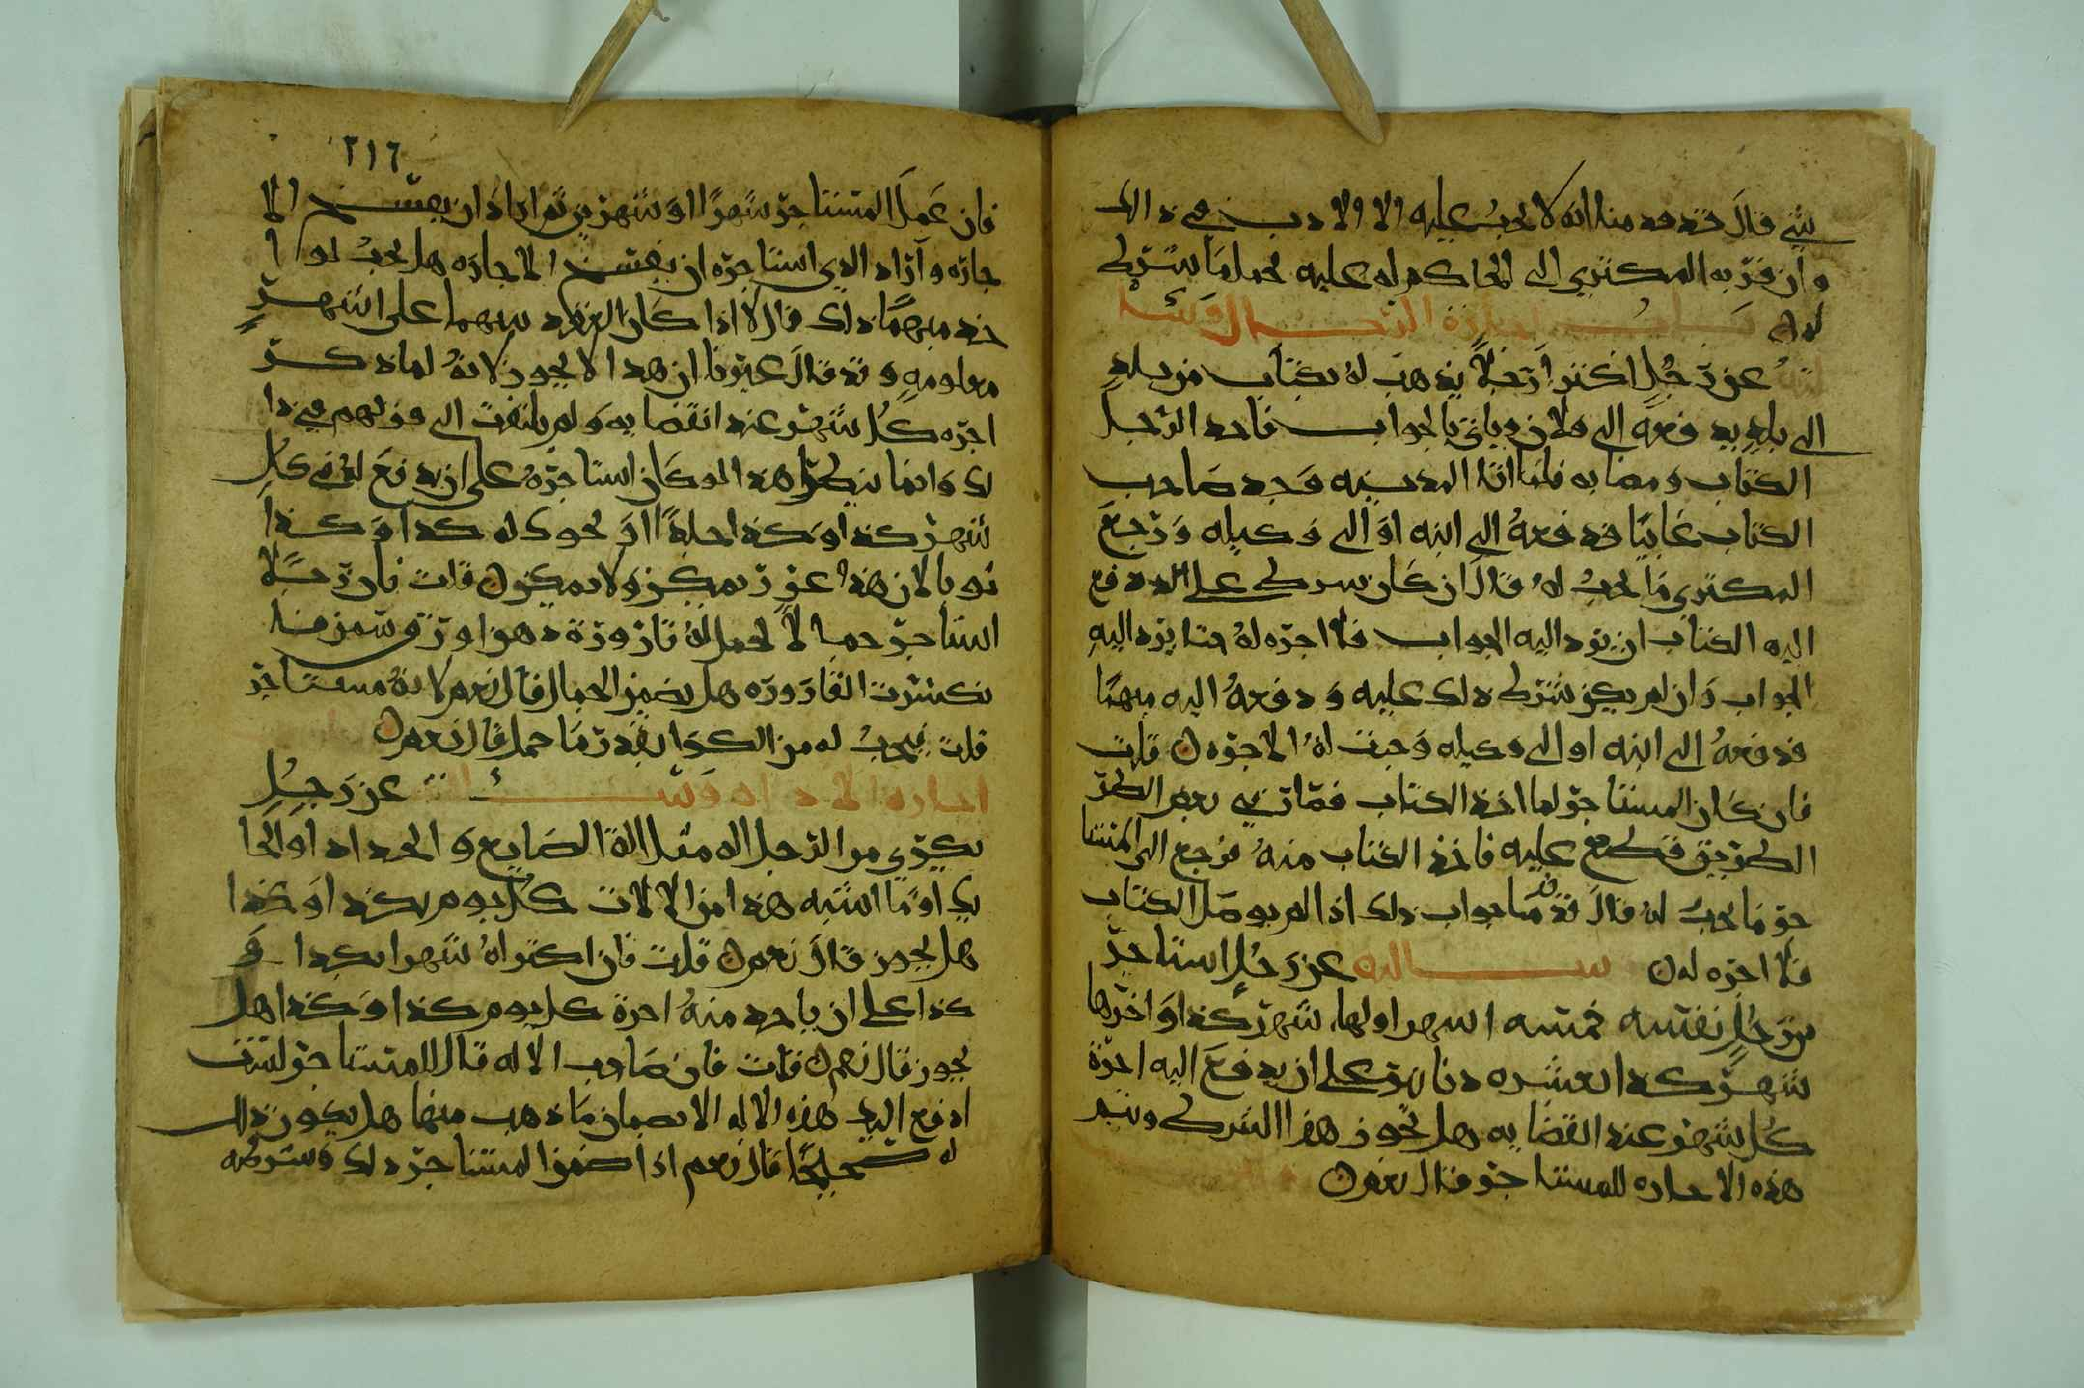 شي قال قد قدمنا انه لا يجب عليه الا ولا دب في ذالك
وان قربه المكتري الى الحاكم له عليه لحمل ما شرط
له باب اجارة الرجال وسا
لته عن رجل اكترا رجلاً يذهب له بكتاب من بلد
الى بلد يدفعه الى فلان وياتي بالجواب فاخد الرجل
الكتاب ومضا به فلما اتا المدينه وجد صاحب
الكتاب غايبًا فدفعه الى ابنه او الى وكيله ورجع
المكتري ما يجب له قال ان كان شرط على الدي دفع
اليه الكتاب ان يرد اليه الجواب فلا اجره له حتا يرد اليه
الجواب وان لم يكن شرط ذلك عليه ودفعه اليه مبهمًا
فدفعه الى ابنه او الى وكيله وجبت له الاجره قلت
فان كان المستاجر لما اخذ الكتاب فمات في بعض الطر
الطريق قطع عليه فاخذ الكتاب منه فرجع الى المستا
جر ما يجب له قال قد مضا جواب ذلك اذا لم يوصل الكتاب
فلا اجره له سالته عن رجل استاجر
من رجل نفسه خمسه اشهر اولها شهر كذا واخرها
شهر كذا بعشره دنانير على ان يدفع اليه اجرة
كل شهر عند انقضايه هل يجوز هذا الشرط ويتم
هذه الاجاره للمستاجر قال نعم
٢١٦
فان عمل المستاجر شهرًا او شهرين ثم اراد ان يفسخ الا
جاره واراد الذي استاجره ان يفسخ الاجاره هل يجب لوا
حد منهما ذلك قال لا اذا كان العقد بينهما على اشهر
معلومه وقد قال غيرنا ان هذا لا يجوز لانه لما ذكر
اجره كل شهر عند انقضايه ولم يلتفت الى قولهم في ذا
لك وانما ينكر هذا لو كان استاجره على ان يدفع له في كل
شهر كذا وكذا حلة او نحو ذلك كذا وكذا
ثوبا لان هذا غرر يمكن ولا يمكن قلت فان رجلاً
استاجر حمالاً لحمل له قارورة دهن او رق سمن فا
نكسرت القاروره هل يضمن الحمال قال نعم لانه مستاجر
قلت فيجب له من الكرا بقدر ما حمل قال نعم
اجاره الاداه وسئ الته عن رجل
يكري من الرجل اله مثل الة الصايغ والحداد او الحا
يك او ما اشبه هذا من الالات كل يوم بكذا وكذا
هل يجوز قال نعم قلت فان اكتراه شهرا بكذا و
كذا على ان ياخد منه اجرة كل يوم كذا وكذا هل
يجوز قال نعم قلت فان صاحب الاله قال للمستاجر لست
ادفع اليك هذه الاله الا بضمان ما ذهب منها هل يكون ذلك
له صحيحًا قال نعم اذا ضمن المستاجر ذلك وشرطه